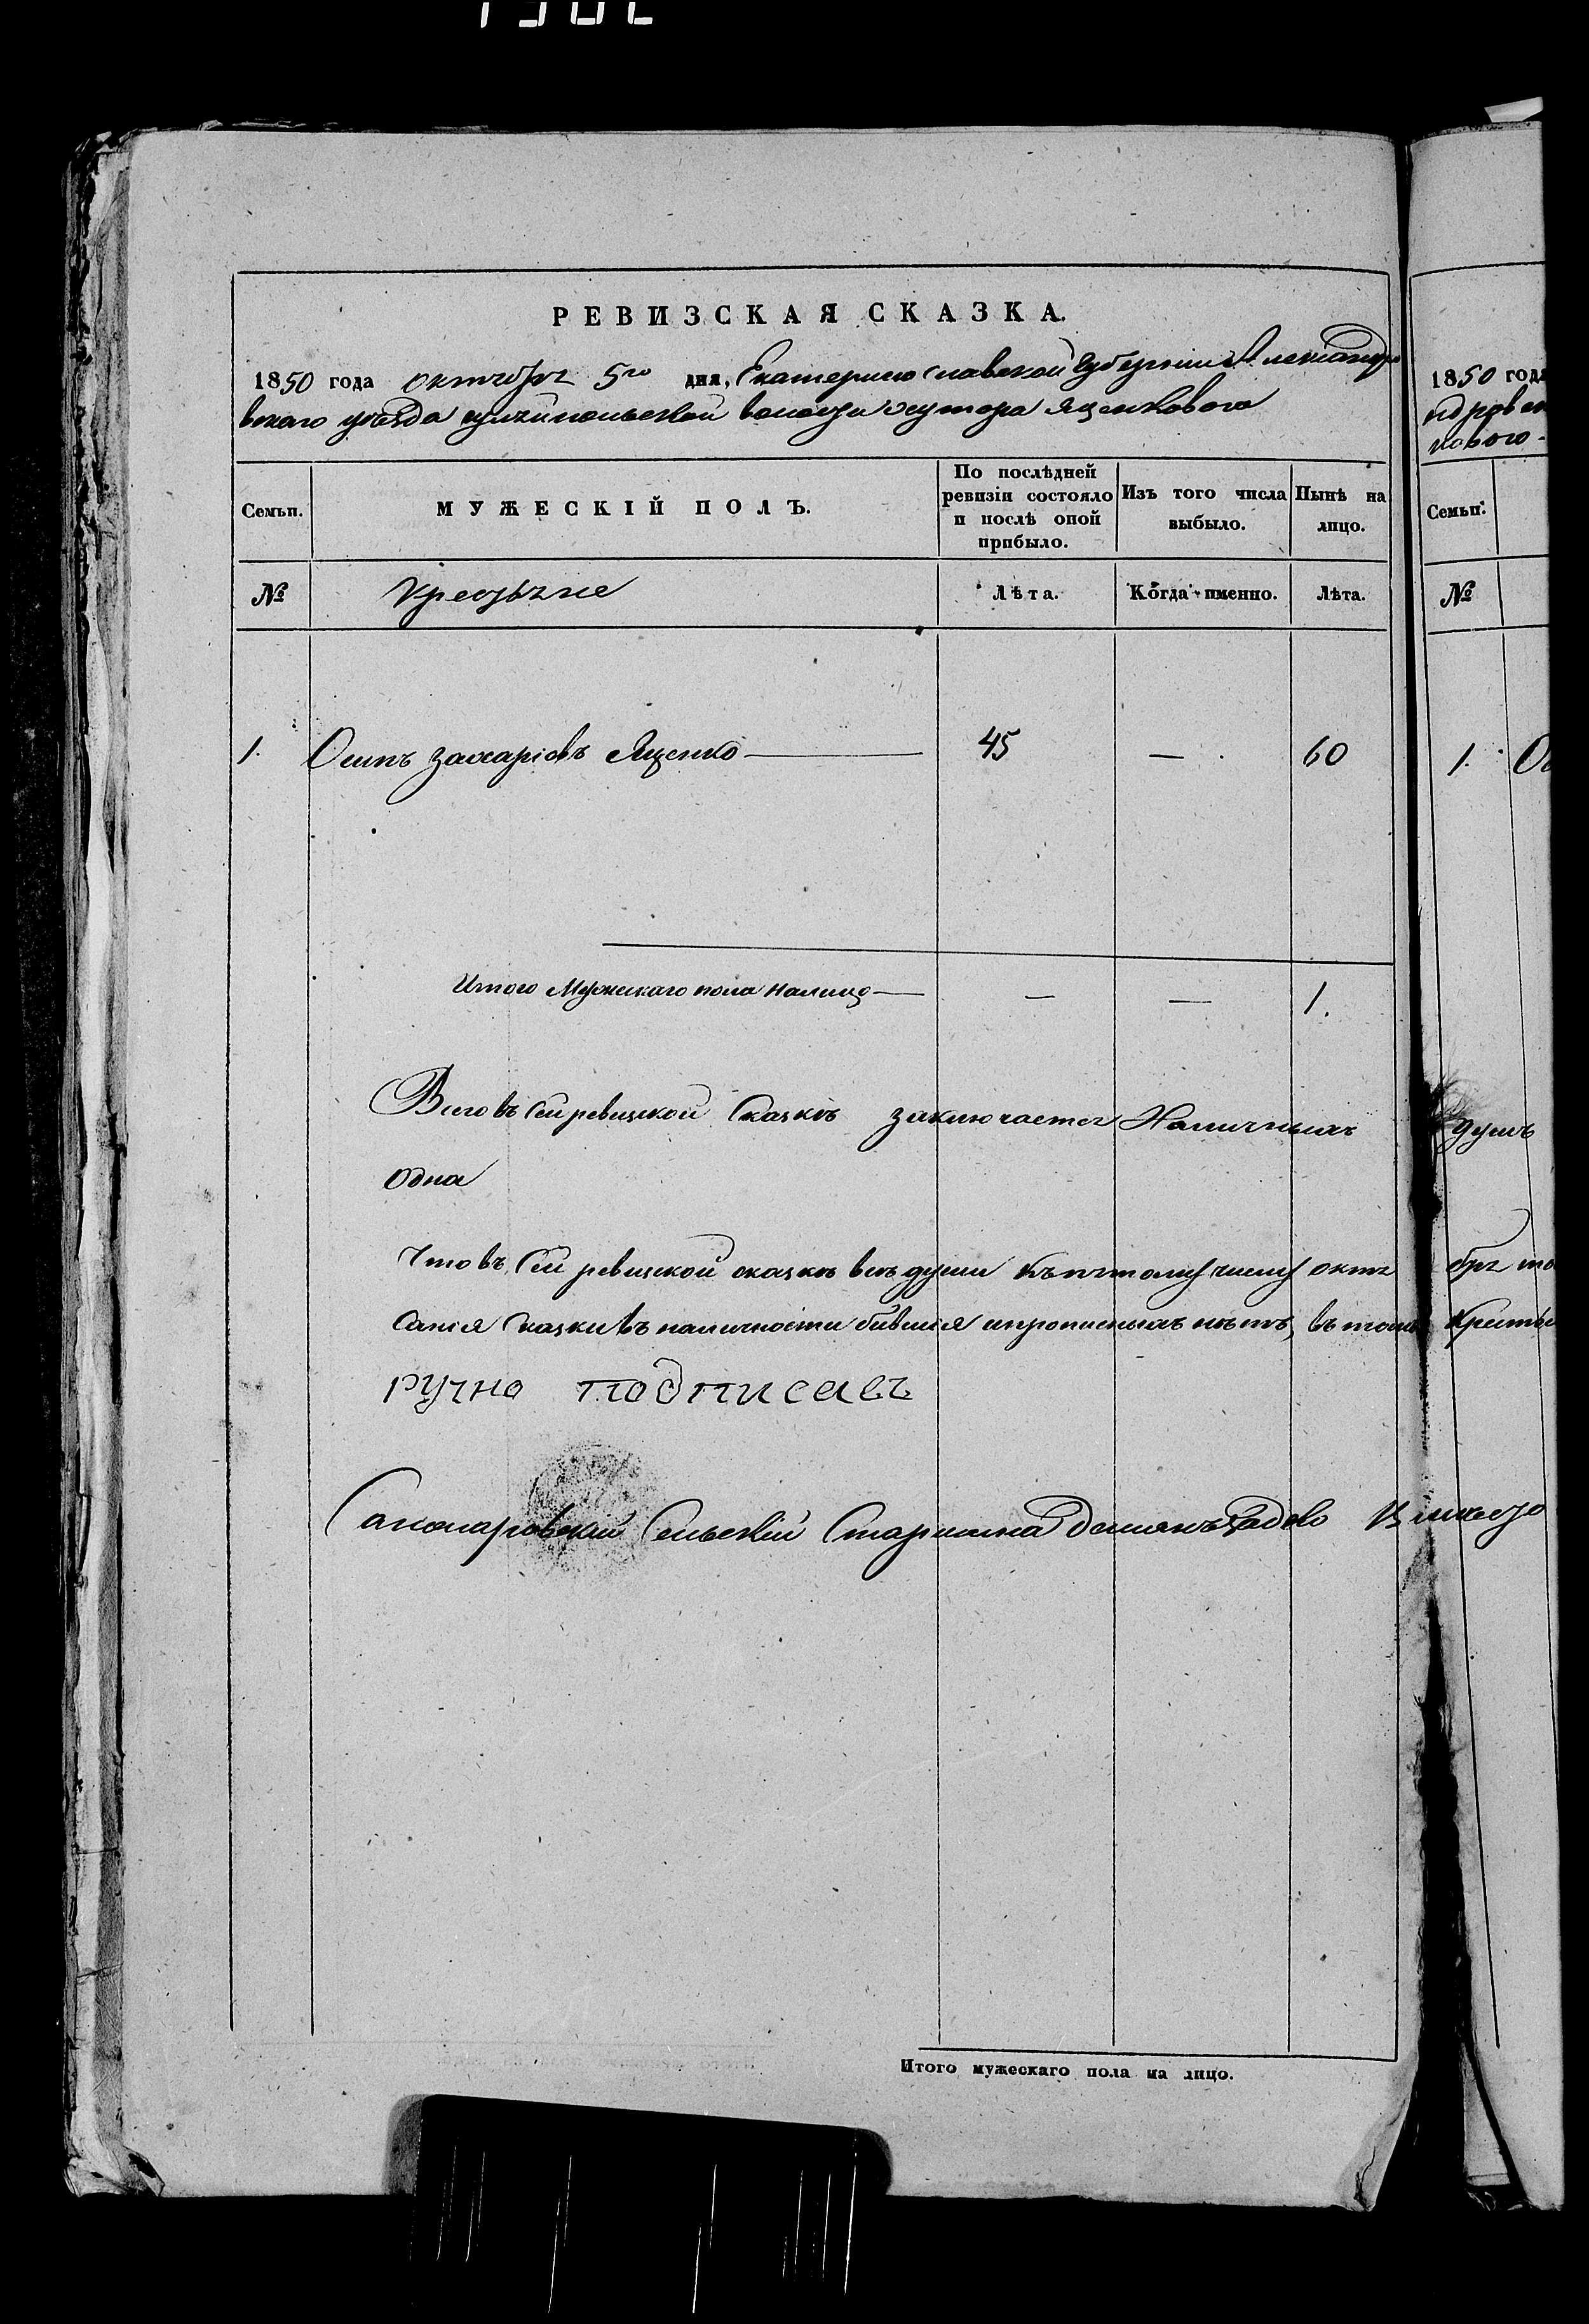 РЕВИЗСКАЯ СКАЗКА.
1850 года октября 5го дня, Екатеринославской Губернии Александро
вскаго уѣзда гуляйпольской волости хутора Ященкового
1850 года
ндровск
кового
Семьи.
МУЖЕСКІЙ ПОЛЪ.
По послѣдней ревизіи состояло и послѣ оной прибыло.
Изъ того числа выбыло.
Нынѣ на лицо.
Семьи.
№ Крестьяне Лѣта. Когда именно. Лѣта. №
1. Осипъ захаріевъ Ященко — 45 — 60 1. Ос
Итого Мужескаго пола налицо — — — 1.
Всего въ Сей ревизской Сказкѣ заключается Наличныхъ душъ
Одна
Что въ Сей ревизской сказкѣ всѣ души къ пятому числу октя бря
санія Сказки въ наличности бывшія и прописныхъ нѣтъ, въ томъ
ручно подписавъ
Сельскій Старшина Демянъ
Итого мужескаго пола на лицо.